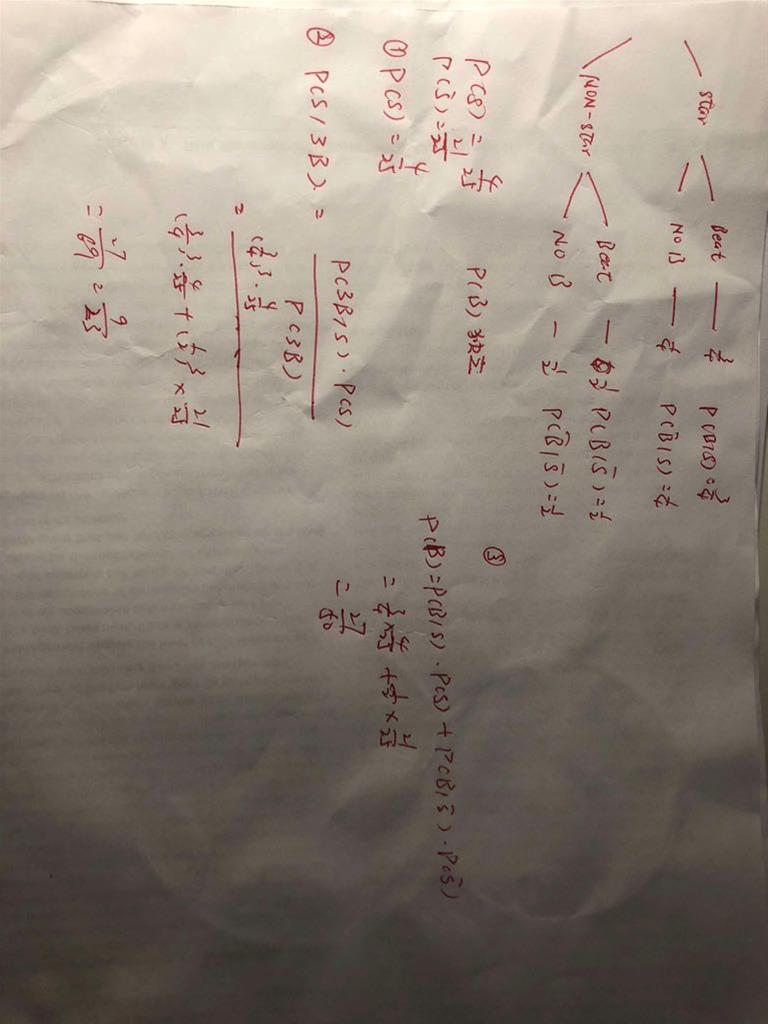 star Beat — 3/4 P(B|S)=3/4
No B — 1/4 P(B̄|S)=1/4
NON-star Beat — 1/2 P(B|S̄)=1/2
No B — 1/2 P(B̄|S̄)=1/2
P(S)=4/25
P(S̄)=21/25 P(B)独立
① P(S)=4/25
② P(S|3B) = P(3B|S)·P(S) / P(3B)
= (3/4)³·4/25 / (3/4)³·4/25 + (1/2)³×21/25
= 9/23
③
P(B)=P(B|S)·P(S)+P(B|S̄)·P(S̄)
=3/4×4/25+1/2×21/25
=27/50